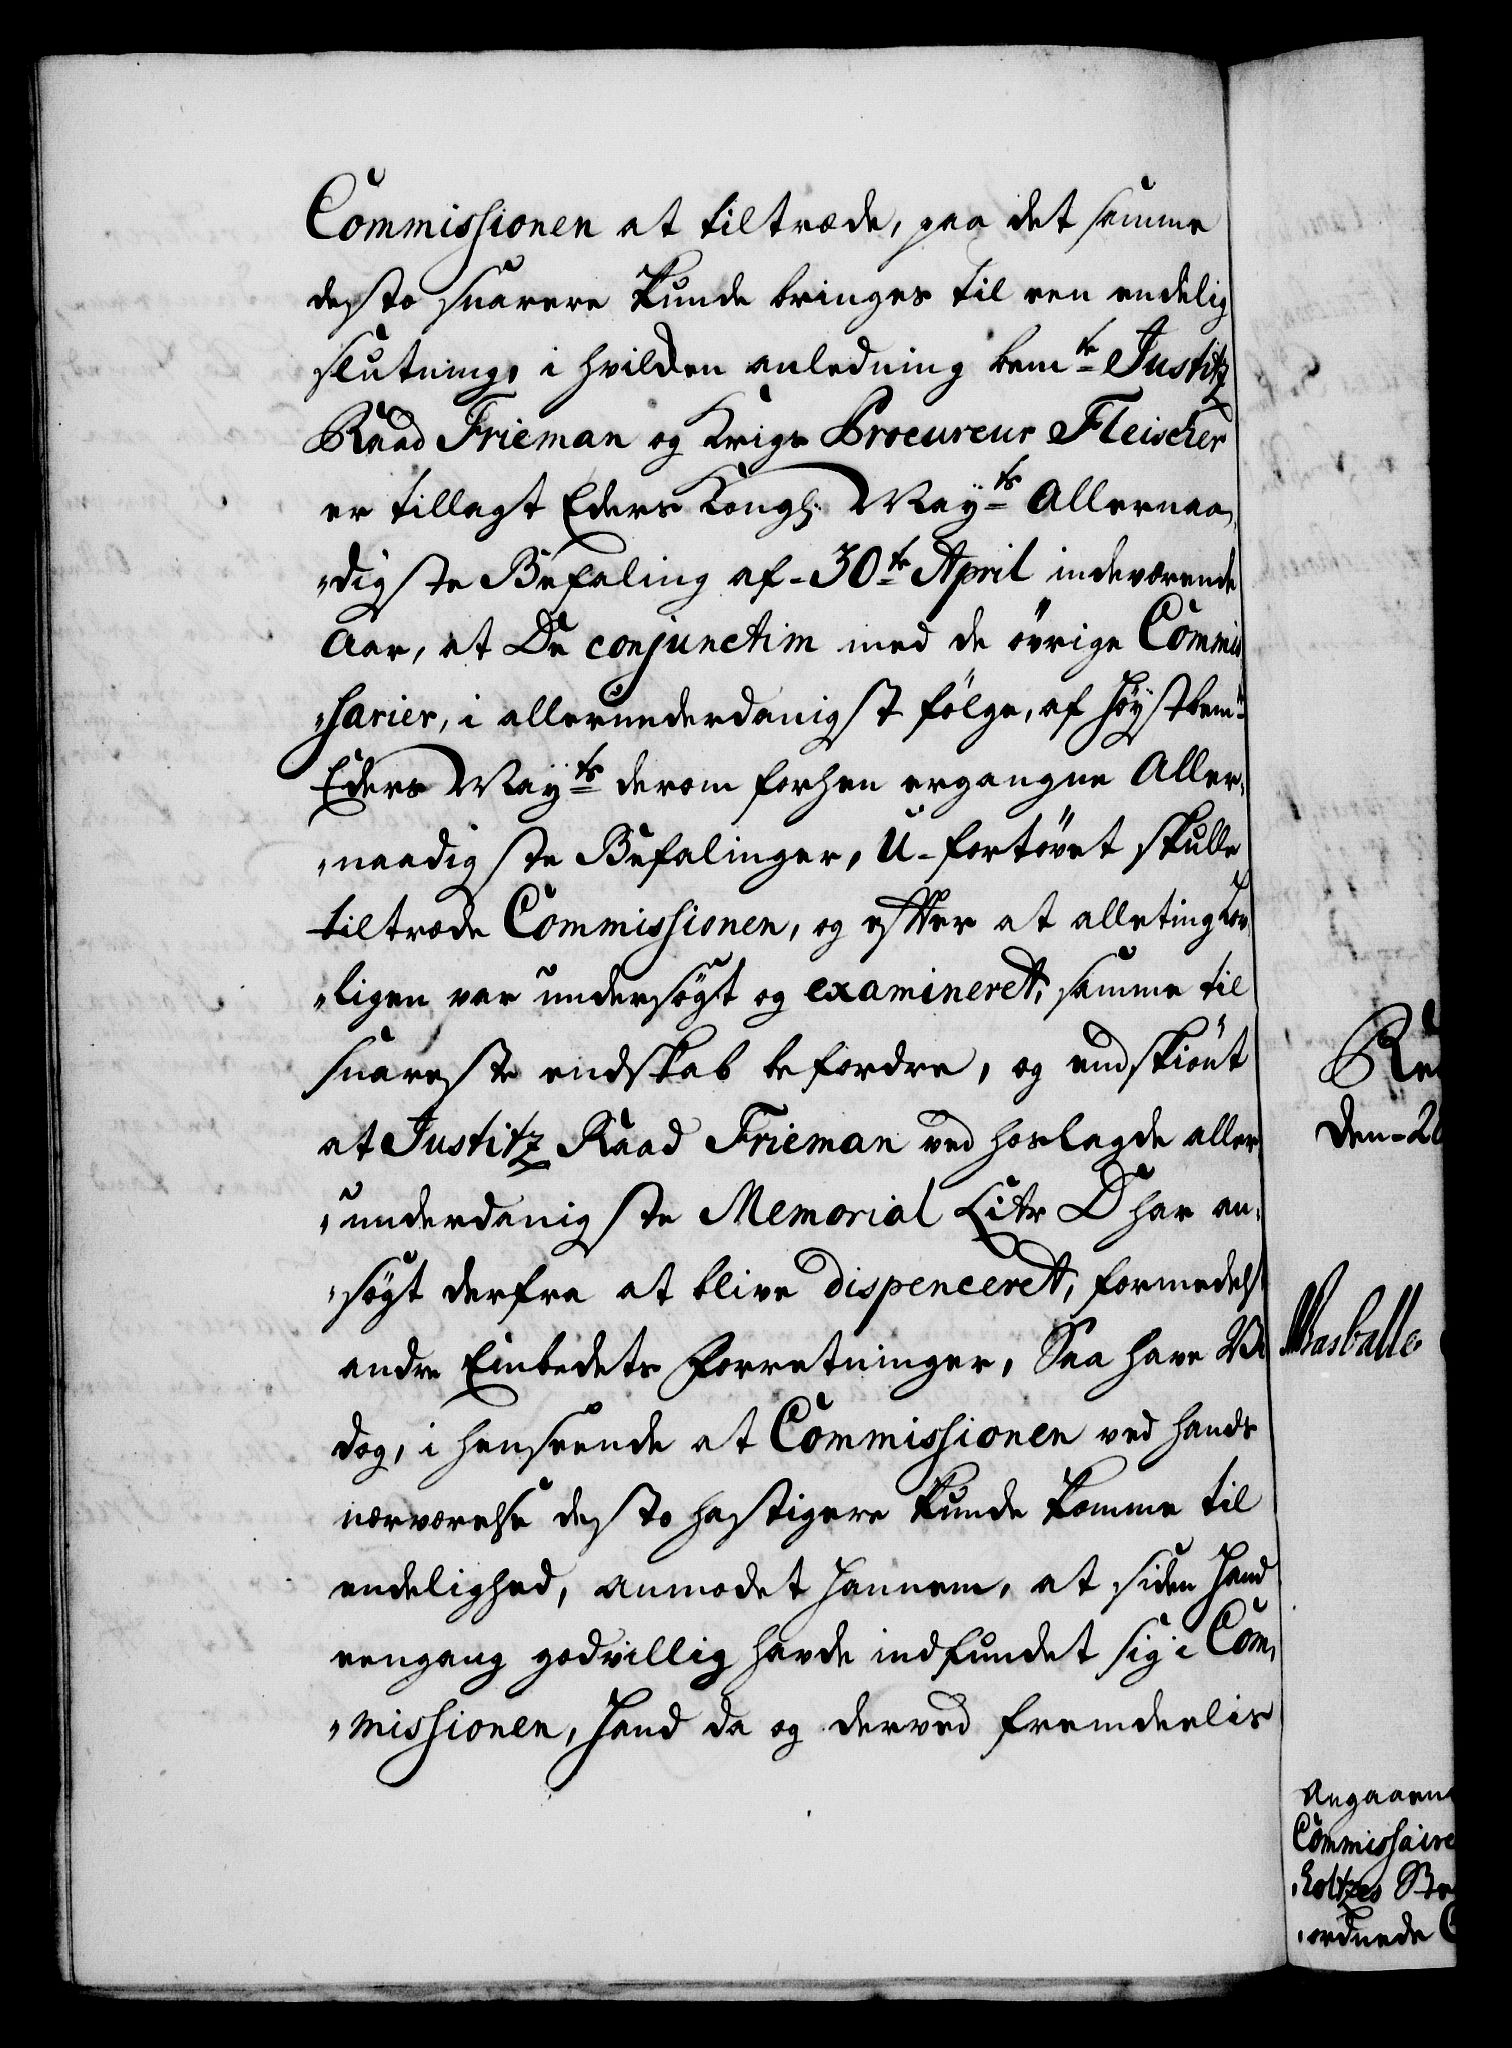 Commissionen at tiltræde, paa det samme
desto snarere kunde bringes til een endelig
slutning, i hvilcken anledning bemte Justitz
Raad Frieman og Krigs Procureur Fleischer
er tillagt Eders Kongl: Mayts Allernaa„
„digste Befaling af 30te April indeværende
Aar, at De conjunctim med de övrige Commis
„sarier, i allerunderdanigst fölge, af Höystbemte
Eders Mayts derom forhen ergangne Aller„
„naadigste Befalinger, U-fortövet skulle
tiltræde Commissionen, og efter at alleting Lov„
„ligen var undersögt og examineret, samme til
snareste endskab befordre, og endskiönt
at Justitz Raad Frieman ved hoslagde aller„
„underdanigste Memorial Litr D har an„
„sögt derfra at blive dispenceret, formedelst
andre Embedets Forretninger, Saa have Vi
dog, i henseende at Commissionen ved hands
nærværelse desto hastigere kunde komme til
endelighed, anmodet Hannem, at siden Hand
eengang godvillig havde indfundet sig i Com„
„missionen, Hand da og derved fremdeelis
den 2
Angaaen
Commissaire
ordnede